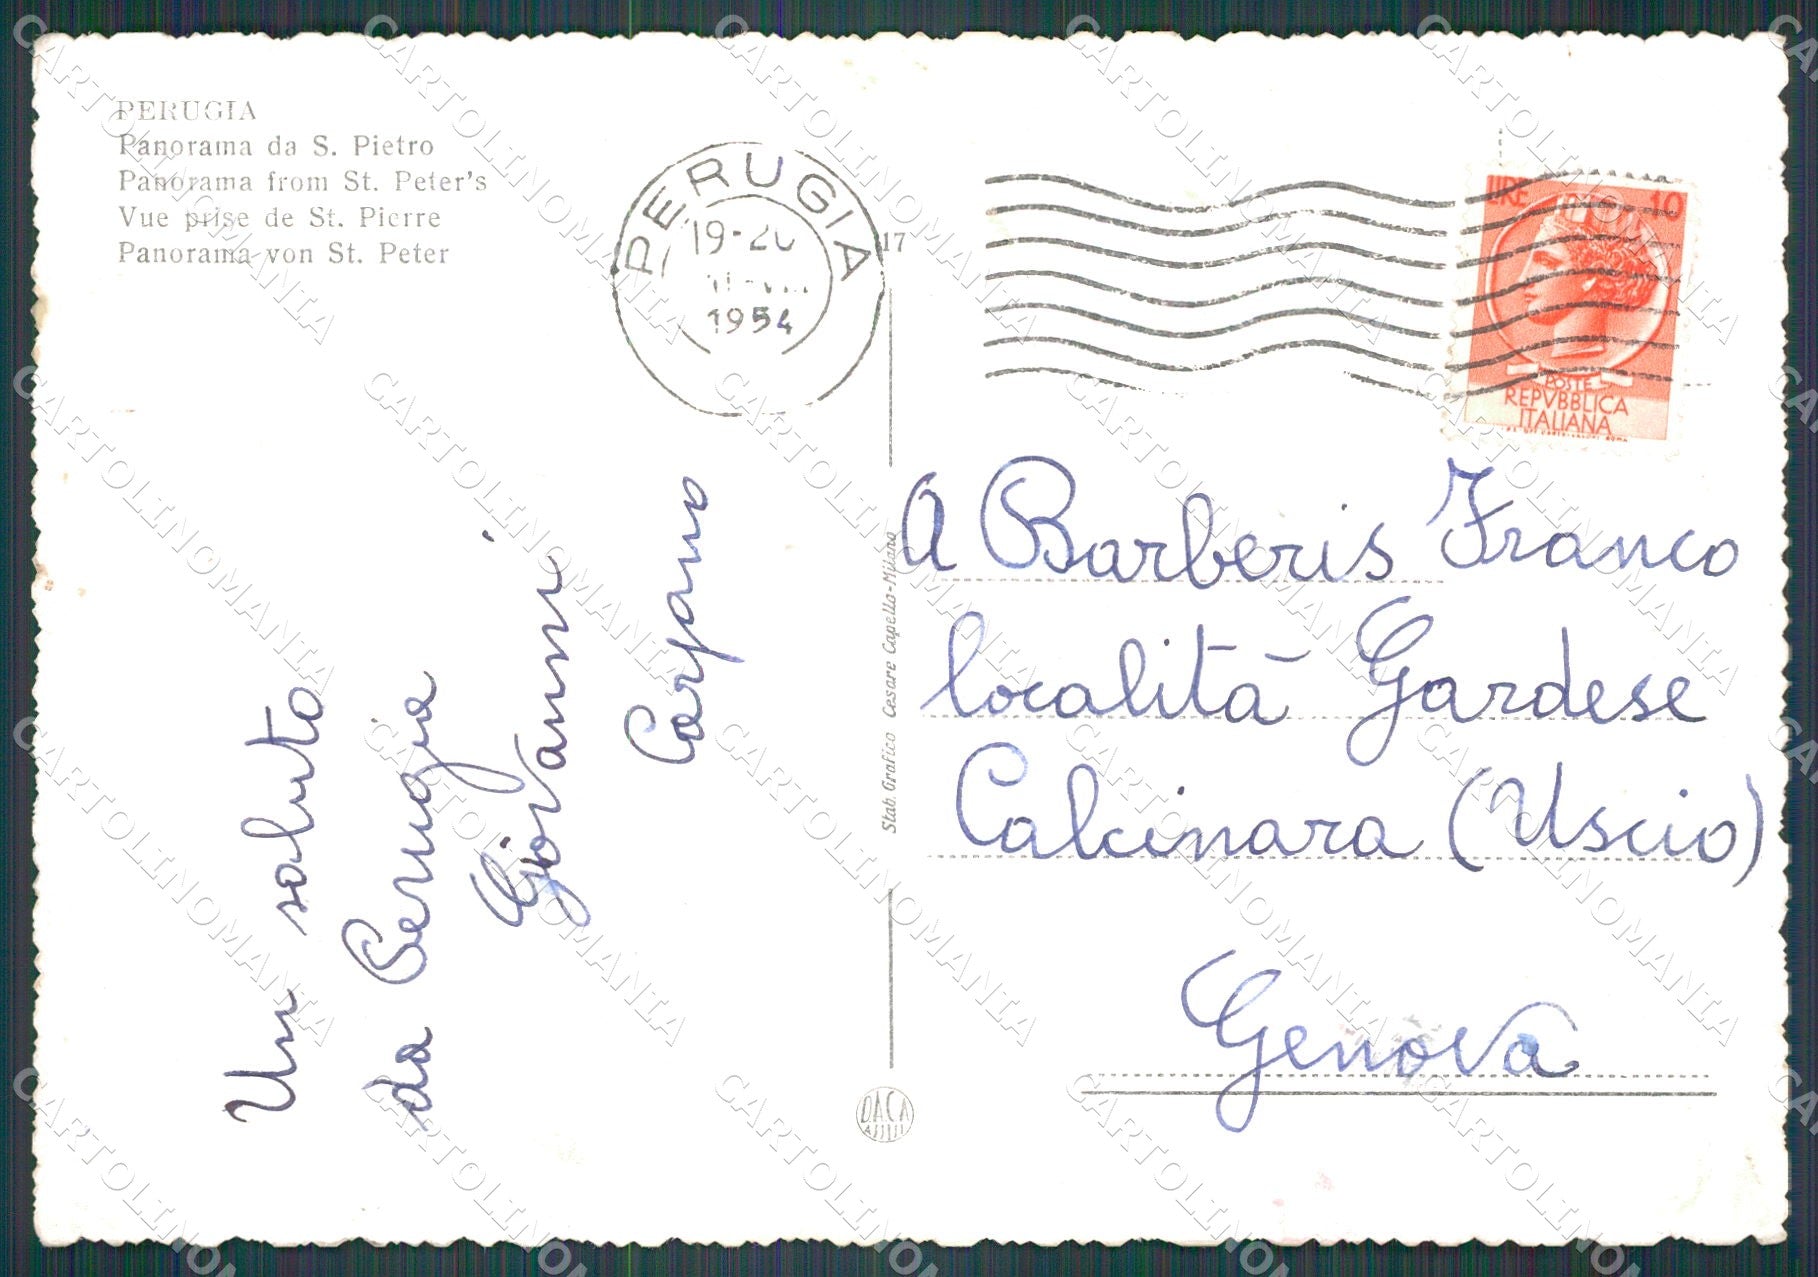 PERUGIA
Panorama da S. Pietro
Panorama from St. Peter's
Vue prise de St. Pierre
Panorama von St. Peter
PERUGIA
19-20
1954
17
LIRE 10
POSTE
REPVBBLICA
ITALIANA
Un saluto
da Perugia
Giovanni
Stab. Grafico Cesare Capello-Milano
A Barberis Franco
località Gardese
Calcinara (Uscio)
Genova
DACA
CARTOLINOMANIA